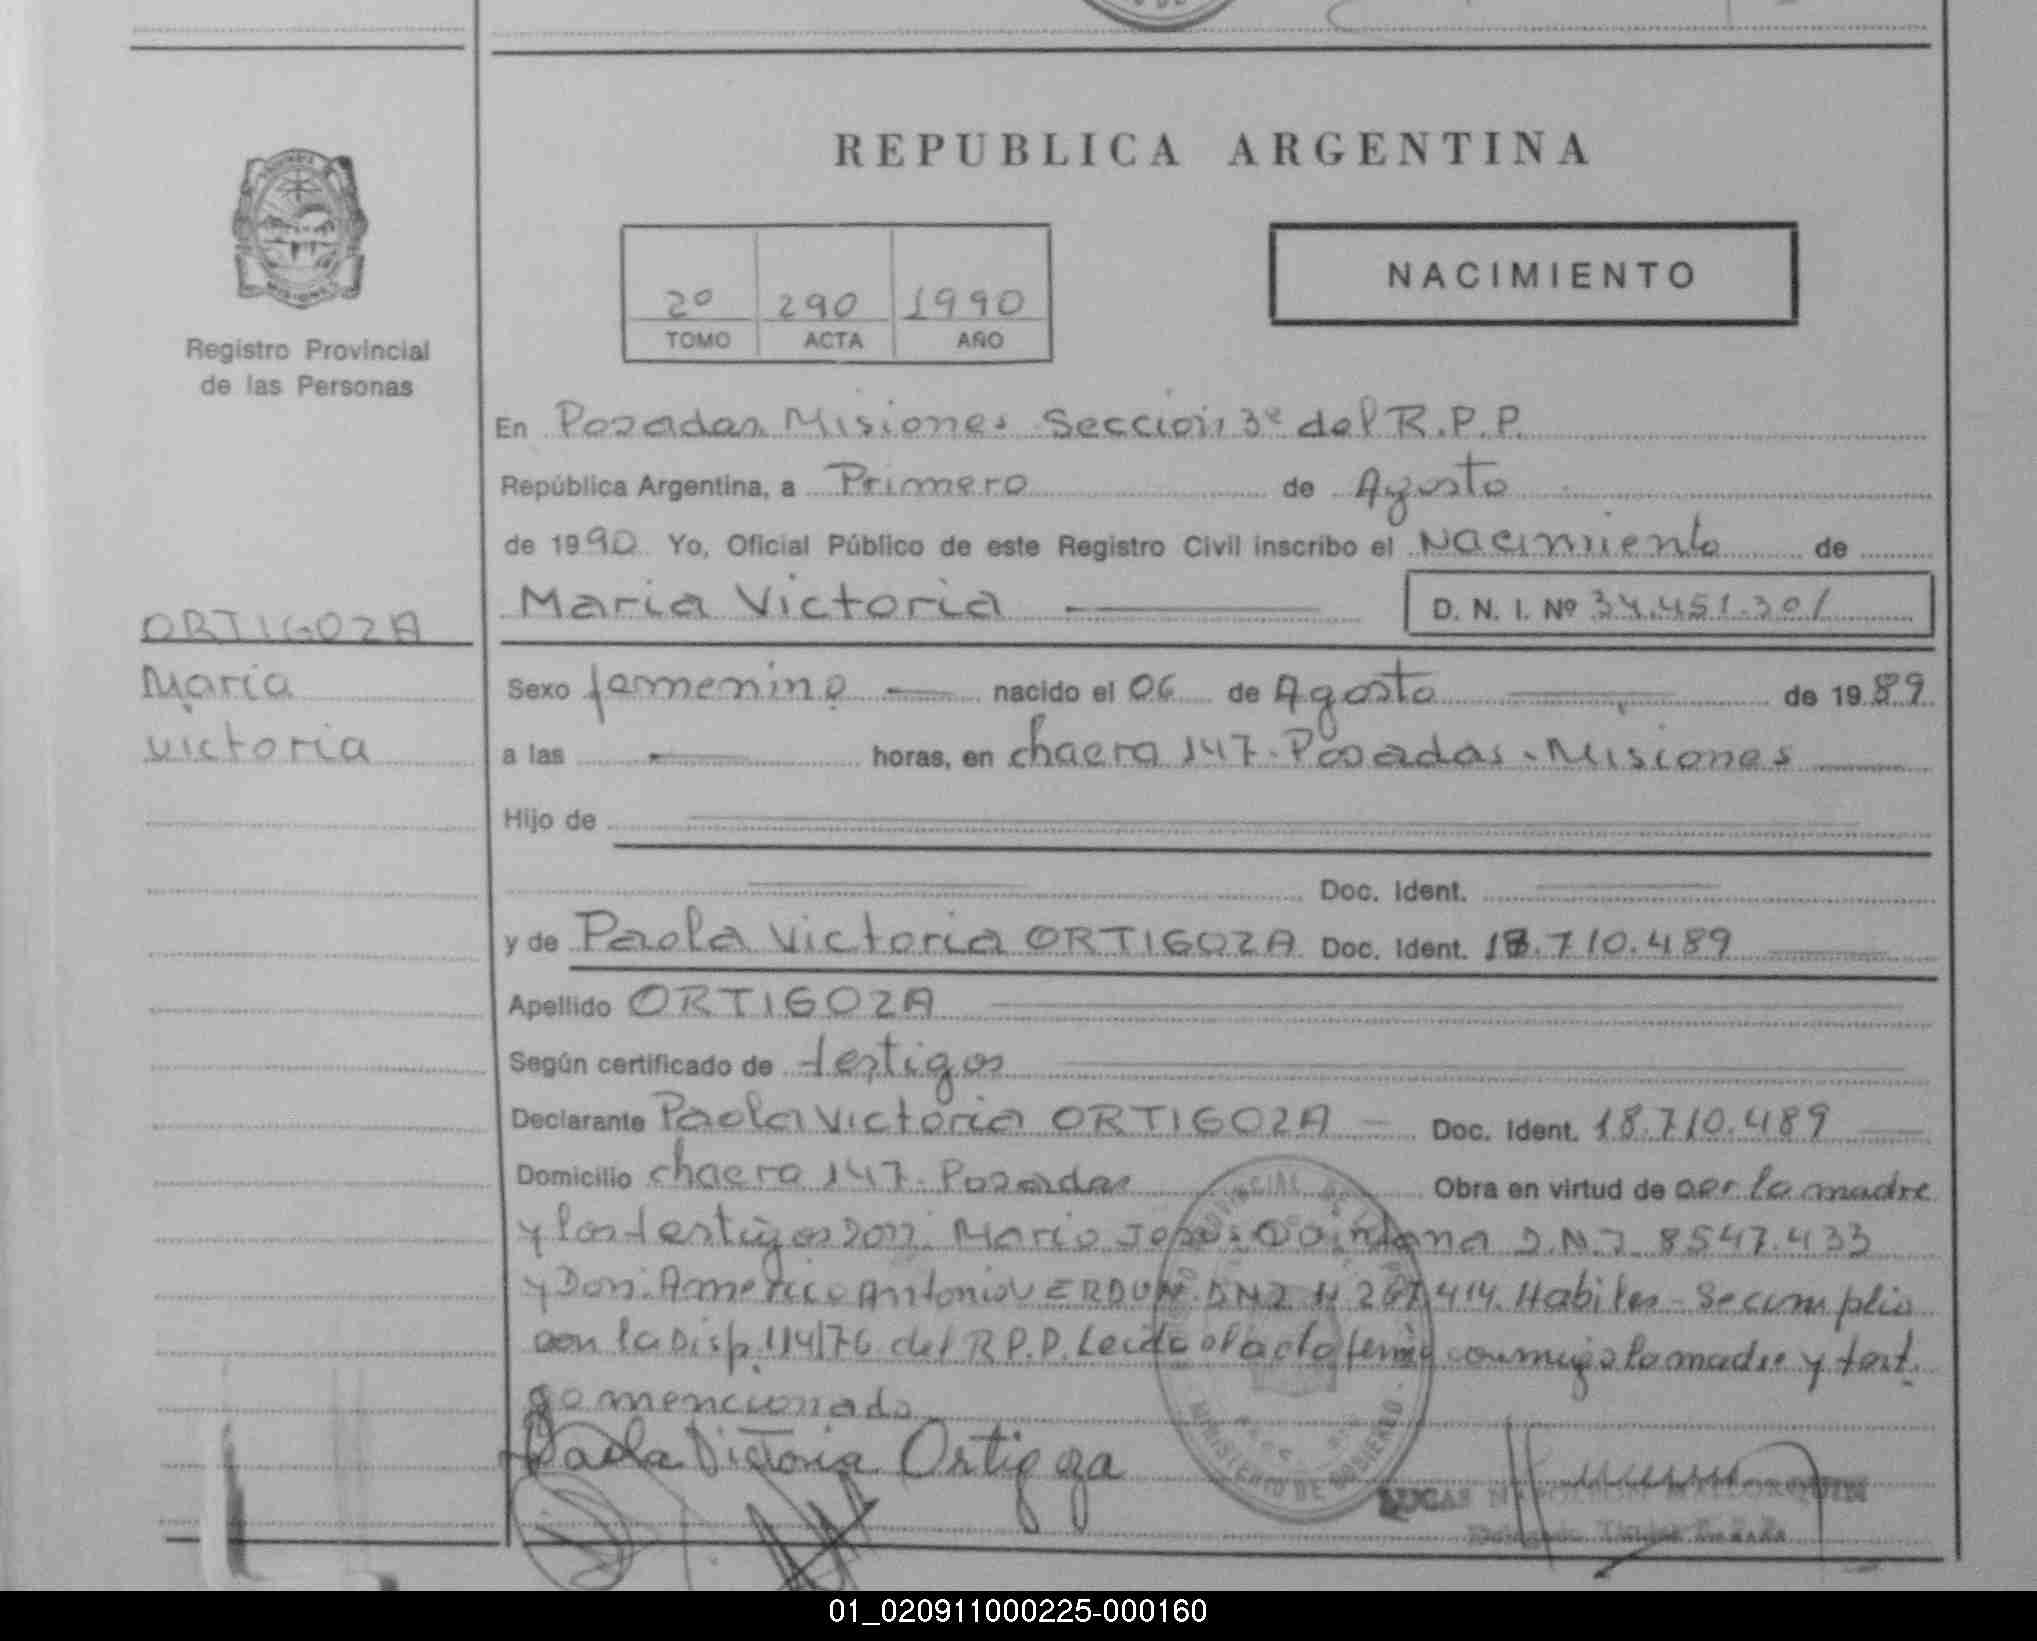 REPUBLICA ARGENTINA
NACIMIENTO
2º 290 1990
TOMO ACTA AÑO
Registro Provincial
de las Personas
En Posadas Misiones Sección 3ª del R.P.P.
República Argentina, a Primero de Agosto
de 1990 Yo, Oficial Público de este Registro Civil inscribo el Nacimiento de
Maria Victoria D. N. I. Nº 34.451.301
ORTIGOZA
Maria
Victoria
Sexo femenino nacido el 06 de Agosto de 1989
a las horas, en chacra 147. Posadas - Misiones
Hijo de
Doc. Ident.
y de Paola Victoria ORTIGOZA Doc. Ident. 18.710.489
Apellido ORTIGOZA
Según certificado de testigos
Declarante Paola Victoria ORTIGOZA Doc. Ident. 18.710.489
Domicilio chacra 147. Posadas Obra en virtud de ser la madre
y los testigos son: Mario Jesus Quintana D.N.I 8547.433
y Don: Americo Antonio VERDUN DNI 414. Habiles - Se cumplio
con la Disp. 114/76 del R.P.P. Leida el acta conmigo la madre y testi
go mencionado
Paola Victoria Ortigoza
MINISTERIO DE GOBIERNO
LUCAS NAPOLEON MALLORQUIN
01_020911000225-000160